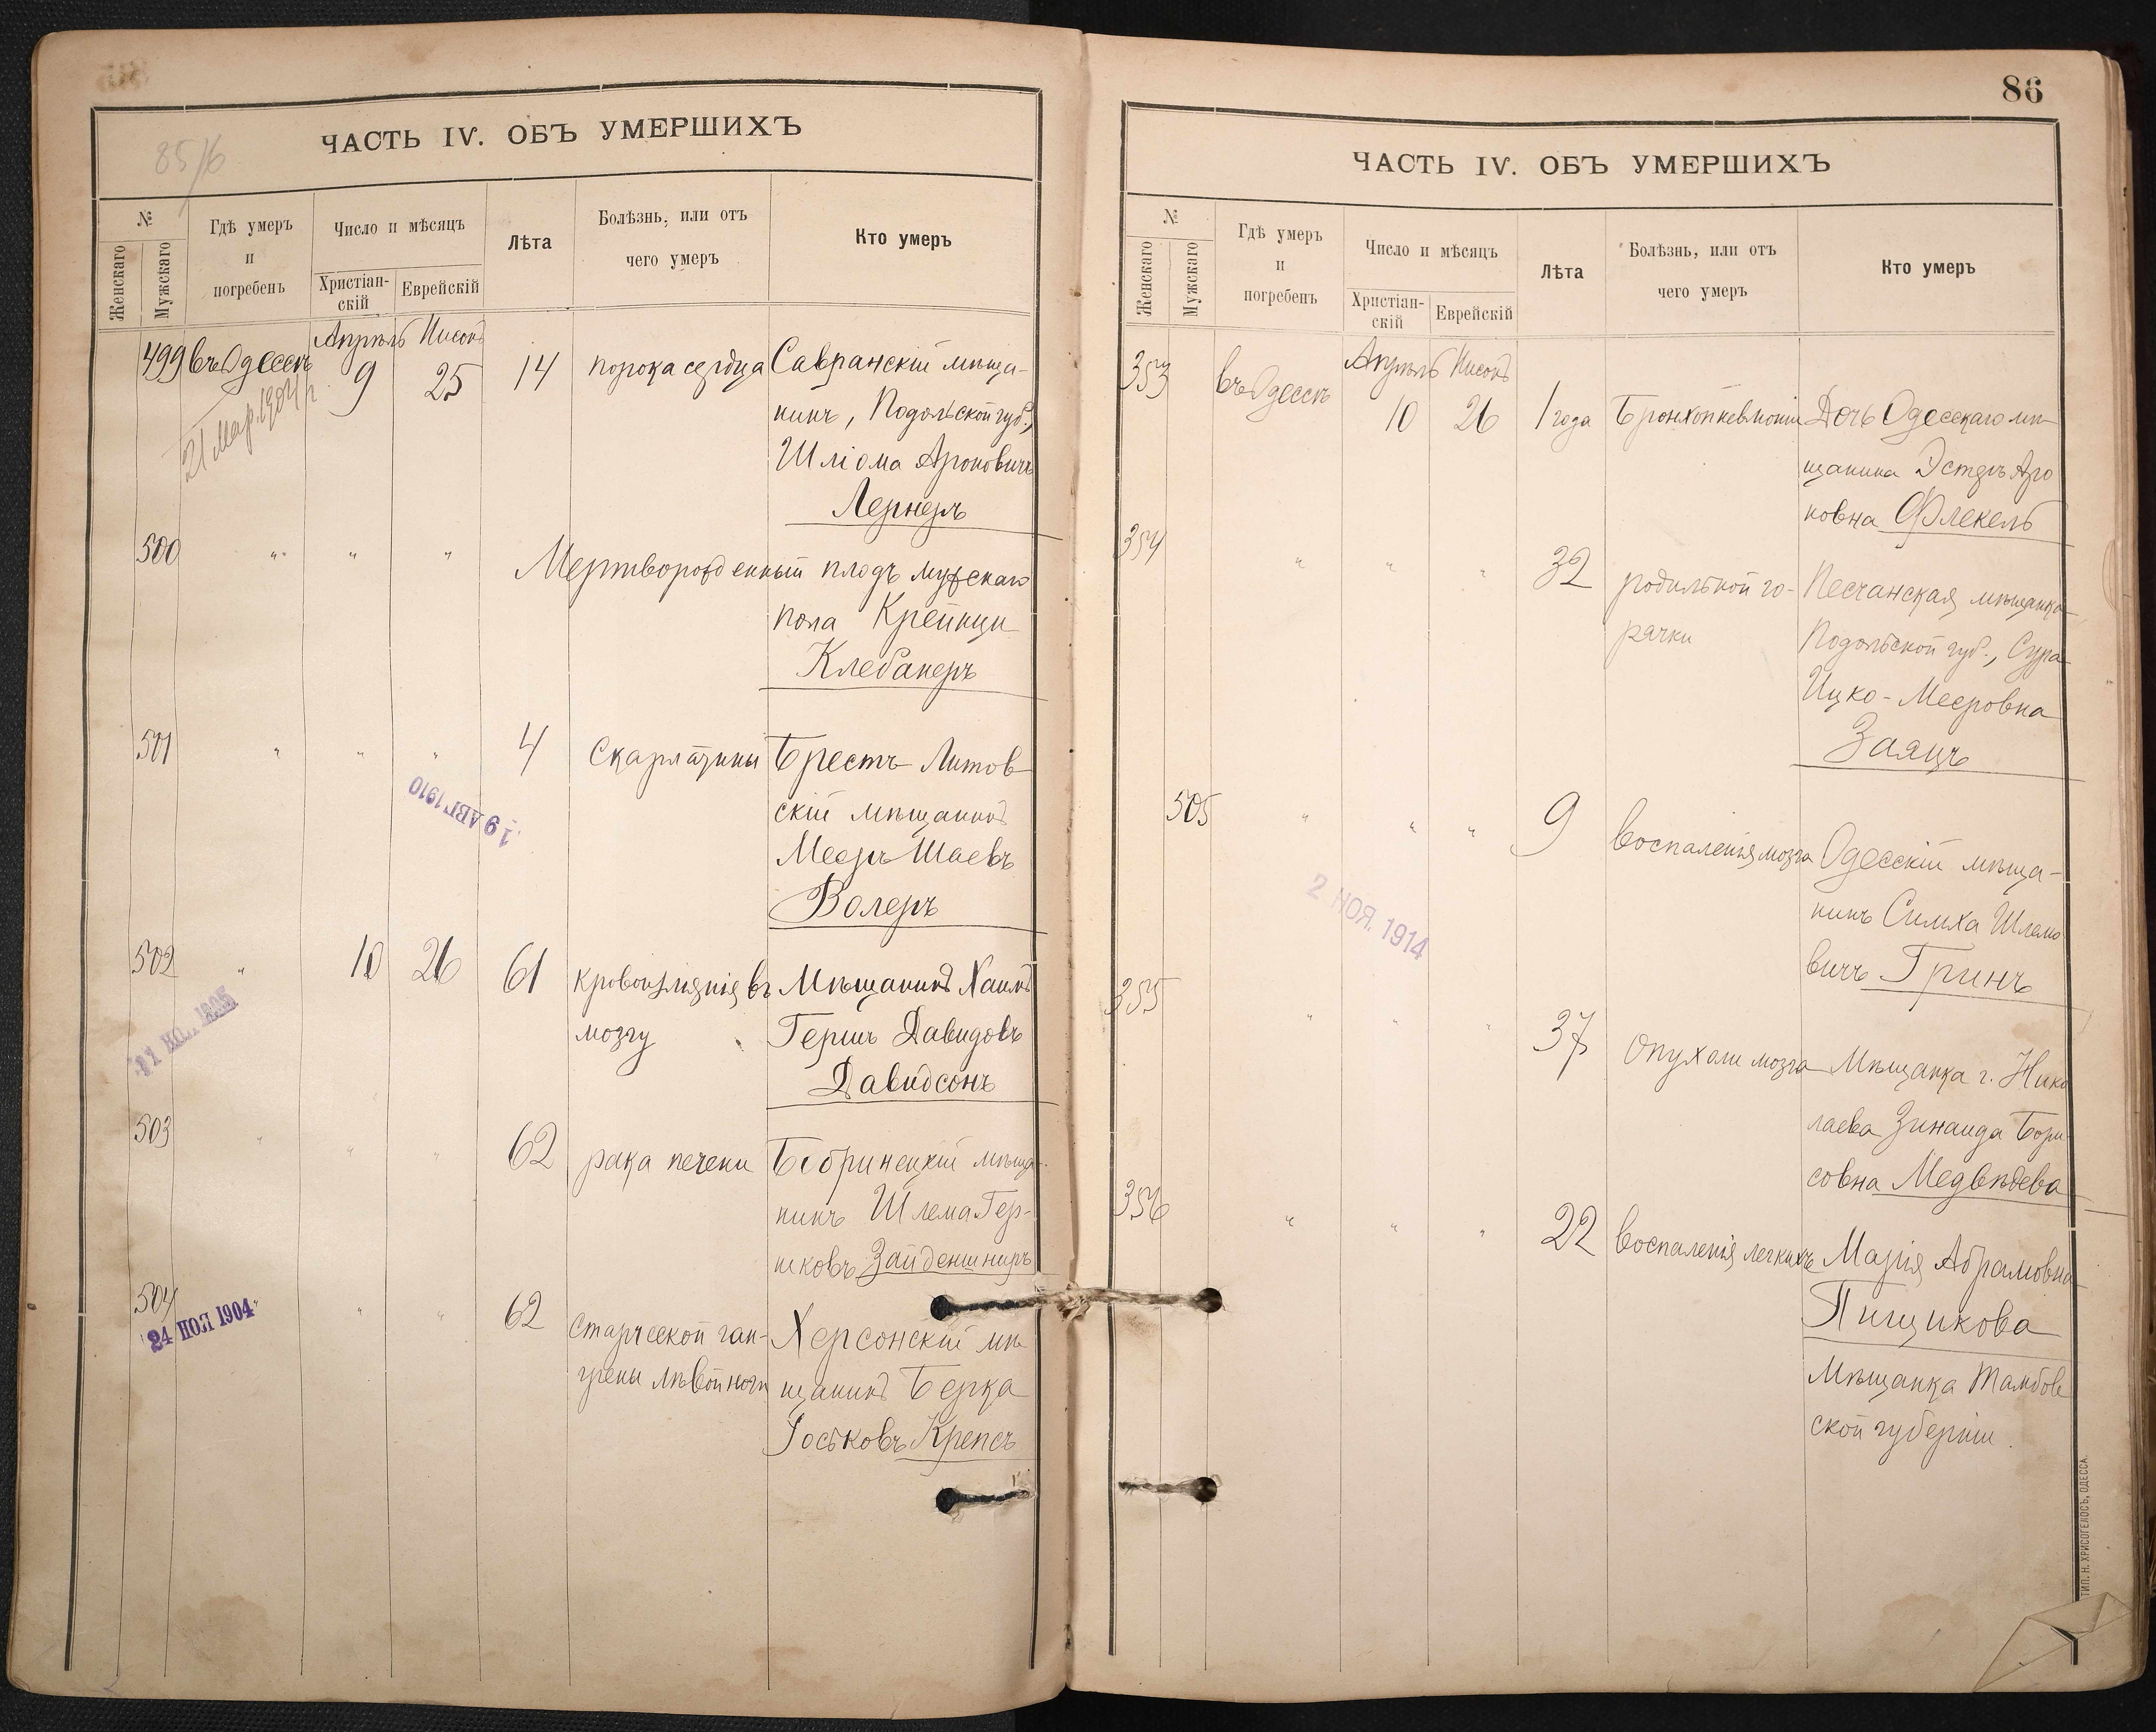 ЧАСТЬ IV. ОБЪ УМЕРШИХЪ
85/6
№
Женскаго
Мужскаго
Гдѣ умеръ
и
погребенъ
Число и мѣсяцъ
Христіан-
скій
Еврейскій
Лѣта
Болѣзнь, или отъ
чего умеръ
Кто умеръ
Апрѣль Нисонъ
499 въ Одессѣ 9 25 14 порока сердца Савранскій мѣща-
21 Мар. 1904 г.
нинъ, Подольской губ.,
Шліома Ароновичъ
Лернеръ
500 " " " Мертворожденный плодъ мужскаго
пола Крейнци
Клебанеръ
501 " " " 4 Скарлатины Брестъ-Литов-
19 АВГ 1910
скій мѣщанинъ
Мееръ Шаевъ
Волеръ
502 " 10 26 61 кровоизліянія въ Мѣщанинъ Хаимъ
мозгу Гершъ Давидовъ
Давидсонъ
503 " " " 62 рака печени Бобринецкій мѣща-
нинъ Шлема Гер-
шковъ Зайденшниръ
504 " " " 62 старческой ган- Херсонскій мѣ-
24 НОЯ 1904
грены лѣвой ноги щанинъ Берка
Іоськовъ Крепсъ
86
ЧАСТЬ IV. ОБЪ УМЕРШИХЪ
№
Женскаго
Мужскаго
Гдѣ умеръ
и
погребенъ
Число и мѣсяцъ
Христіан-
скій
Еврейскій
Лѣта
Болѣзнь, или отъ
чего умеръ
Кто умеръ
Апрѣль Нисонъ
353 въ Одессѣ 10 26 1 года Бронхопневмоніи Дочь Одесскаго мѣ-
щанина Эстеръ Аро
новна Флекель
354 " " " 32 родильной го- Песчанская мѣщанка
рячки Подольской губ., Сура
Ицко-Мееровна
Заяцъ
505 " " " 9 воспаленія мозга Одесскій мѣща-
2 НОЯ. 1914
нинъ Симха Шлемо
вичъ Гринъ
355 " " " 37 опухоли мозга Мѣщанка г. Нико
лаева Зинаида Бори-
совна Медвѣдева
356 " " " 22 воспаленія легкихъ Марія Абрамовна
Пищикова
Мѣщанка Тамбов
ской губерніи.
ТИП. Н. ХРИСОГЕЛОСЪ, ОДЕССА.